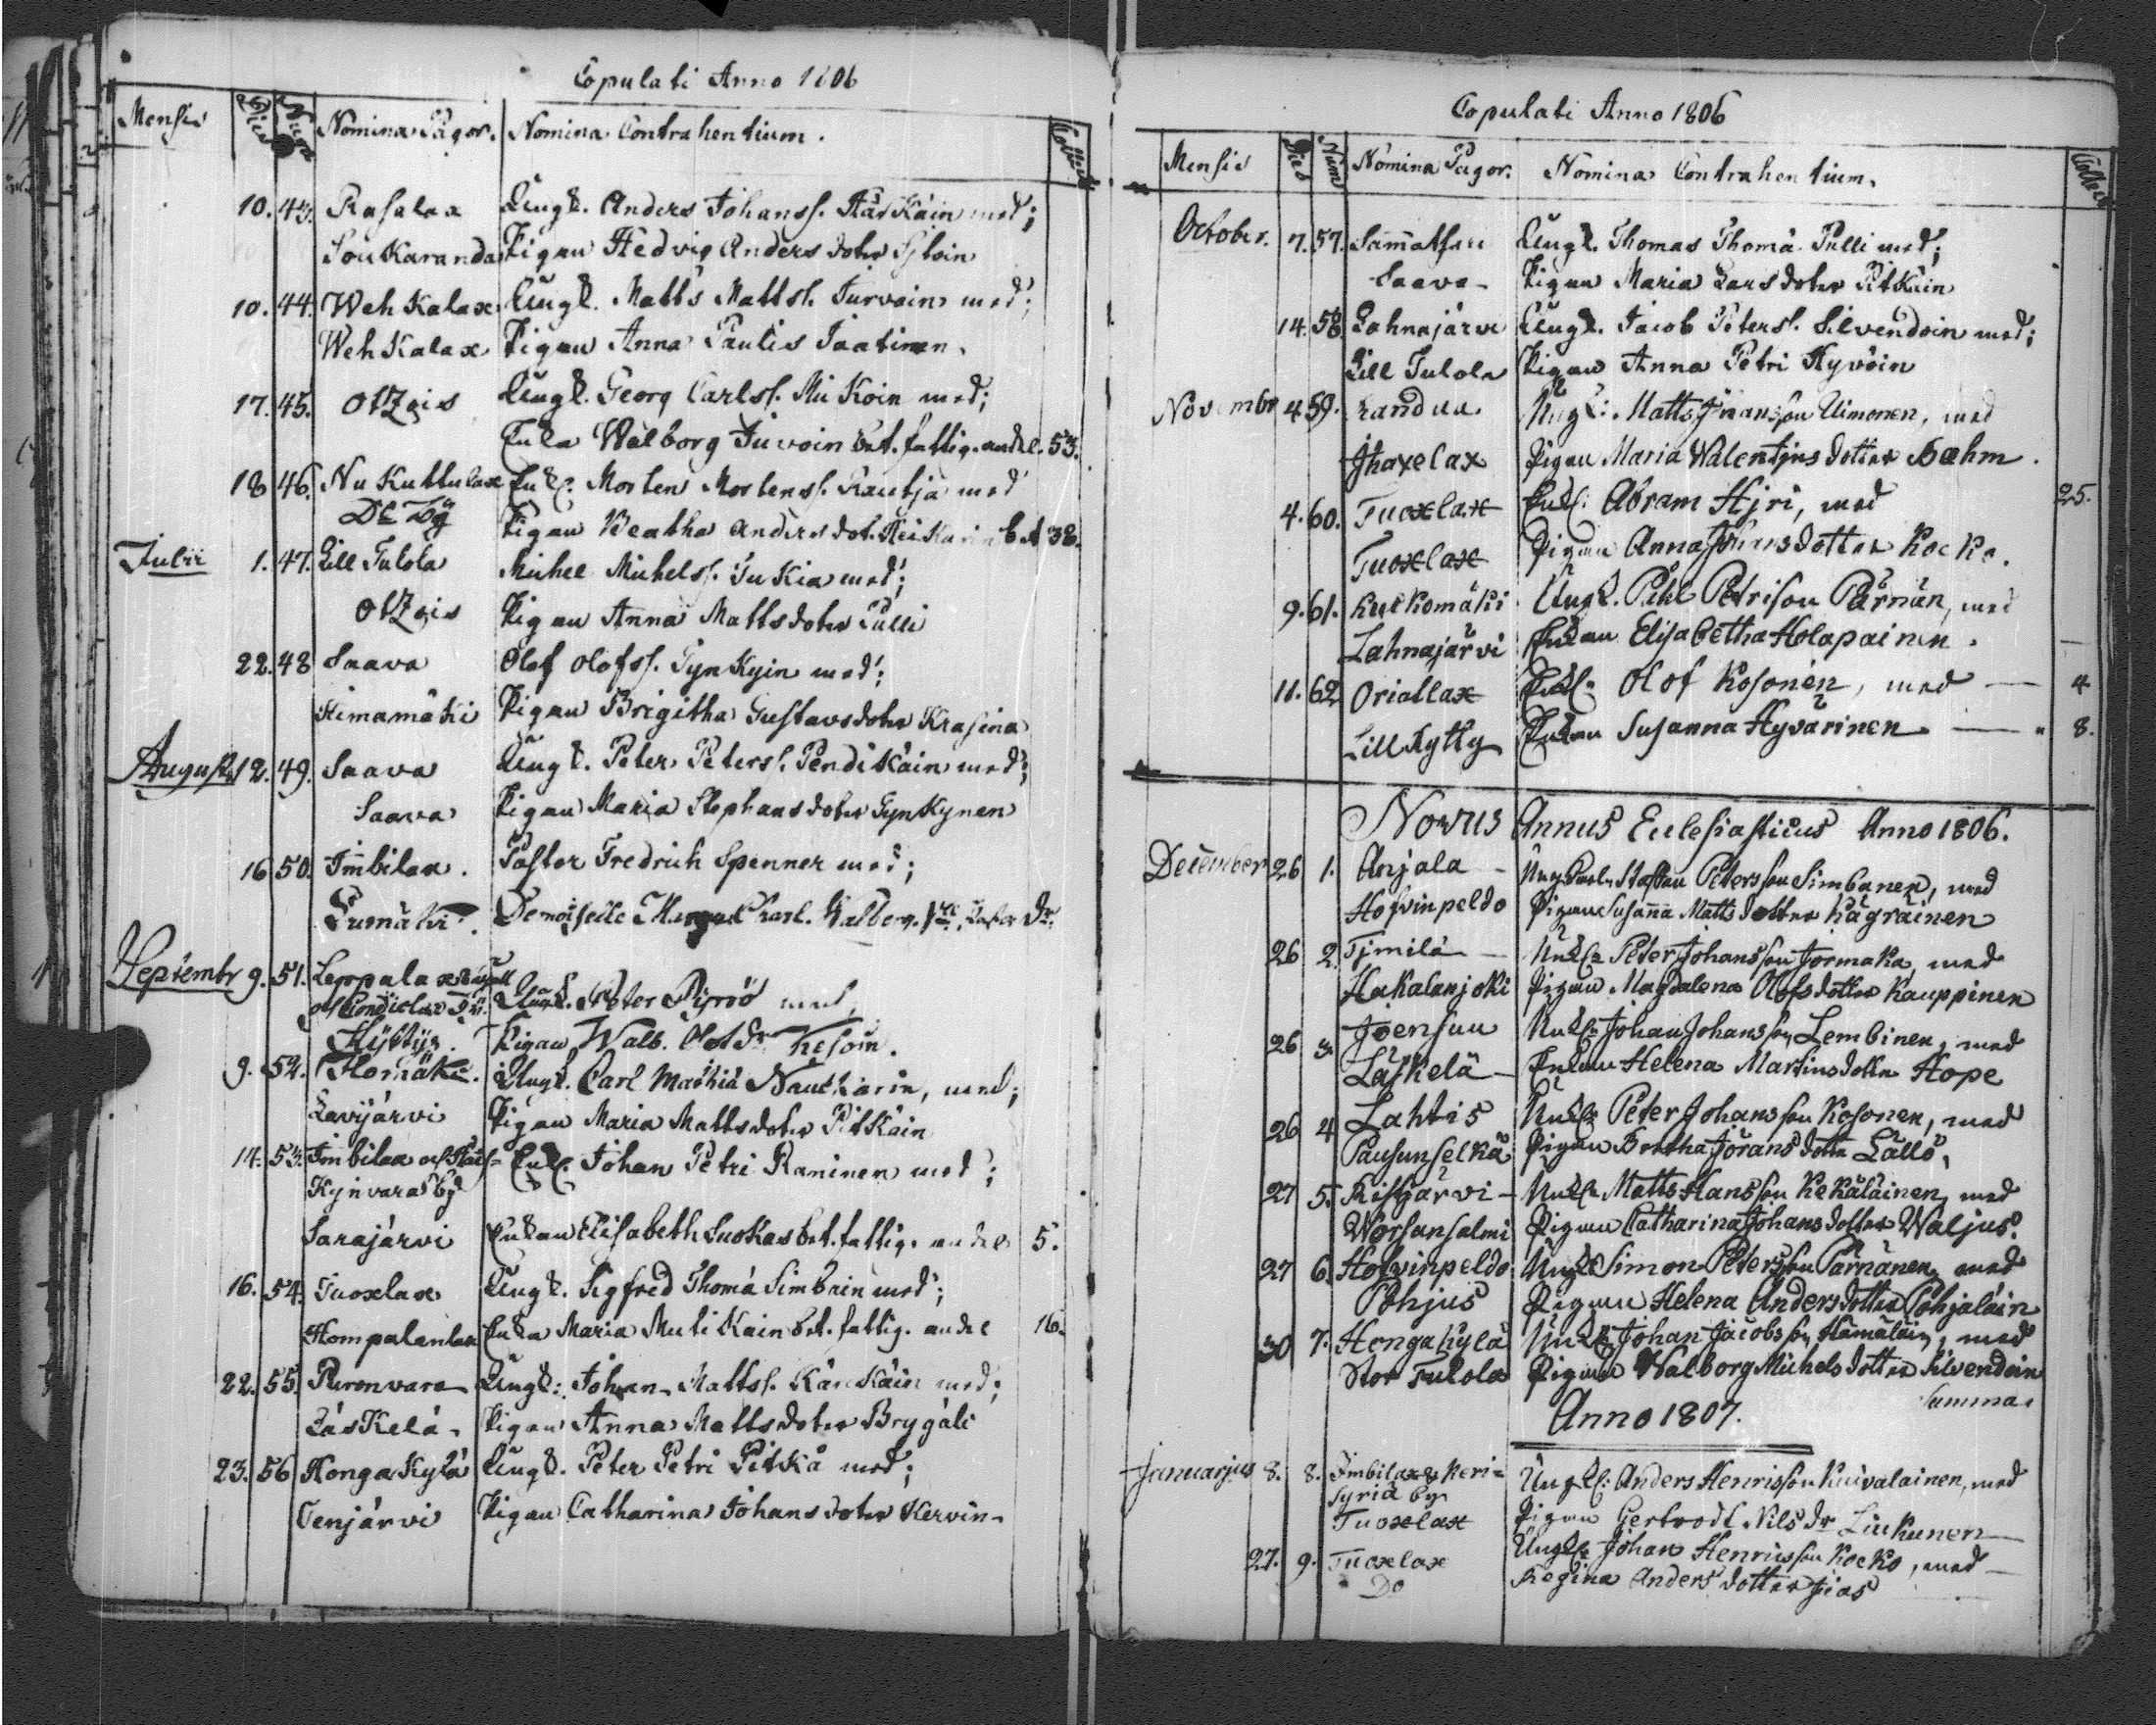 Copulati Anno 1806
Mensis Dies Num Nomina Pagor. Nomina Contrahentium. Collect
10. 43. Rasalax Ungk. Anders Johanss. Härkäin med;
Soukaranda Pigan Hedvig Anders doter
10. 44. Wehkalax Ungk. Matts Mattss. Turvain med;
Wehkalax Pigan Anna Paulis Jaatinen.
17. 45. Otzois Ungk. Georg Carlss. Mikoin med;
Enka Walborg Juvoin bet. fattig. andel. 53.
18 46. Nukuttulax Enkl: Morten Mortenss. Rautja med
Pigan Beatha Anders dot. bet 38.
Julii 1. 47. Lill Tulola Michel Michelss. Tukia med;
Otzois Pigan Anna Matts doter Pulli
22. 48 Saava Olof Olofss. Tynkyin med;
Himamäki Pigan Brigitha Gustavs doter Krasina
August 2. 49. Saava Ungk. Peter Peterss. Pendikäin med;
Saava Pigan Maria Stephans doter Tynkynen
16 50. Imbilax. Pastor Fredrich Spenner med;
Sumäki. Demoiselle Walberg
Septembr 9. 51. Leppalax
Ungk. Peter med,
Pigan Walb. Olofs Dr. Kesoin.
9. 52. Homäki. Ungk. Carl Mathiä Nautkarin, med;
Lavijärvi Pigan Maria Matts doter Pitkäin
14. 53. Imbilax och Enkl. Johan Petri Raninen med;
Kynvaras by
Sarajärvi Enkan Elisabeth Suokas bet. fattig. andel 5.
16. 54. Tuoxlax Ungk. Sigfred Thomä Simbain med;
Hompalanlax Enka Maria Mutikain bet. fattig. andel 16.
22. 55. Puronvara Ungk: Johan Mattss. Kärkäin med;
Läskelä. Pigan Anna Matts doter Brygäli
23. 56 Hongakylä Ungk. Peter Petri Pitkä med;
Tenjärvi Pigan Catharina Johans doter Kervin.
Copulati Anno 1806
Mensis Dies Num Nomina Pagor. Nomina Contrahentium. Collect
October. 7. 57. Sammatsari Ungk. Thomas Thomä Pulli med;
Saava Pigan Maria Lars doter Pitkäin
14. 58 Lahnajärvi Ungk. Jacob Peterss. Silvendoin med;
Lill Tulola Pigan Anna Petri Hyvöin
Novembr 4 59. Randua Ungk: Matts Jöransson Uimonen, med
Jhaxelax Pigan Maria Walentins dotter Bæhm.
4. 60. Tuoxlax Enkl: Abram Hjri, med 25.
Tuoxlax Pigan Anna Johans dotter Kocko.
9. 61. Kurkomäki Ungk. Påhl Petrison Pärnän, med
Lahnajärvi Enkan Elisabetha Holapainen.
11. 62 Oriatlax Enkl: Olof Kosonen, med — 4
Lill Rytty Enkan Susanna Hyvärinen — " 8.
Novus Annus Eclesiasticus Anno 1806.
December 26 1. Anjala Staffan Petersson Simbanen, med
Hofvinpeldo Pigan Susanna Matts dotter Kägräinen
26 2. Tjmilä Peter Johansson Jormaka, med
Hakalanjoki Pigan Magdalena Olofs dotter Kauppinen
26 3. Joensuu Johan Johansson Lembinen, med
Läskelä Enkan Helena Martins dotter Hope
26 4 Lahtis Peter Johansson Kosonen, med
Pausunselkä Pigan Beatha Jörans dotter Lällö,
27 5. Ristjärvi Matts Hansson Kekäläinen, med
Worsansalmi Pigan Catharina Johans dotter Waljus.
27 6. Hofvinpeldo Simon Petersson Pärnänen, med
Pohjus Pigan Helena Anders dotter Pohjaläin
30 7. Hongakylä Johan Jacobsson Hämäläin, med
Stor Tulola Pigan Walborg Michels dotter Silvendoin
Summa
Anno 1807.
Januarius 8. 8. Imbilax & Keri-
Ungkl: Anders Henrisson Kuivalainen, med
syriä by
Tuoxlax Pigan Gertrodt Nils dr Liukunen
27. 9. Tuoxlax Johan Henrisson Kocko, med
Do Regina Anders dotter Jias